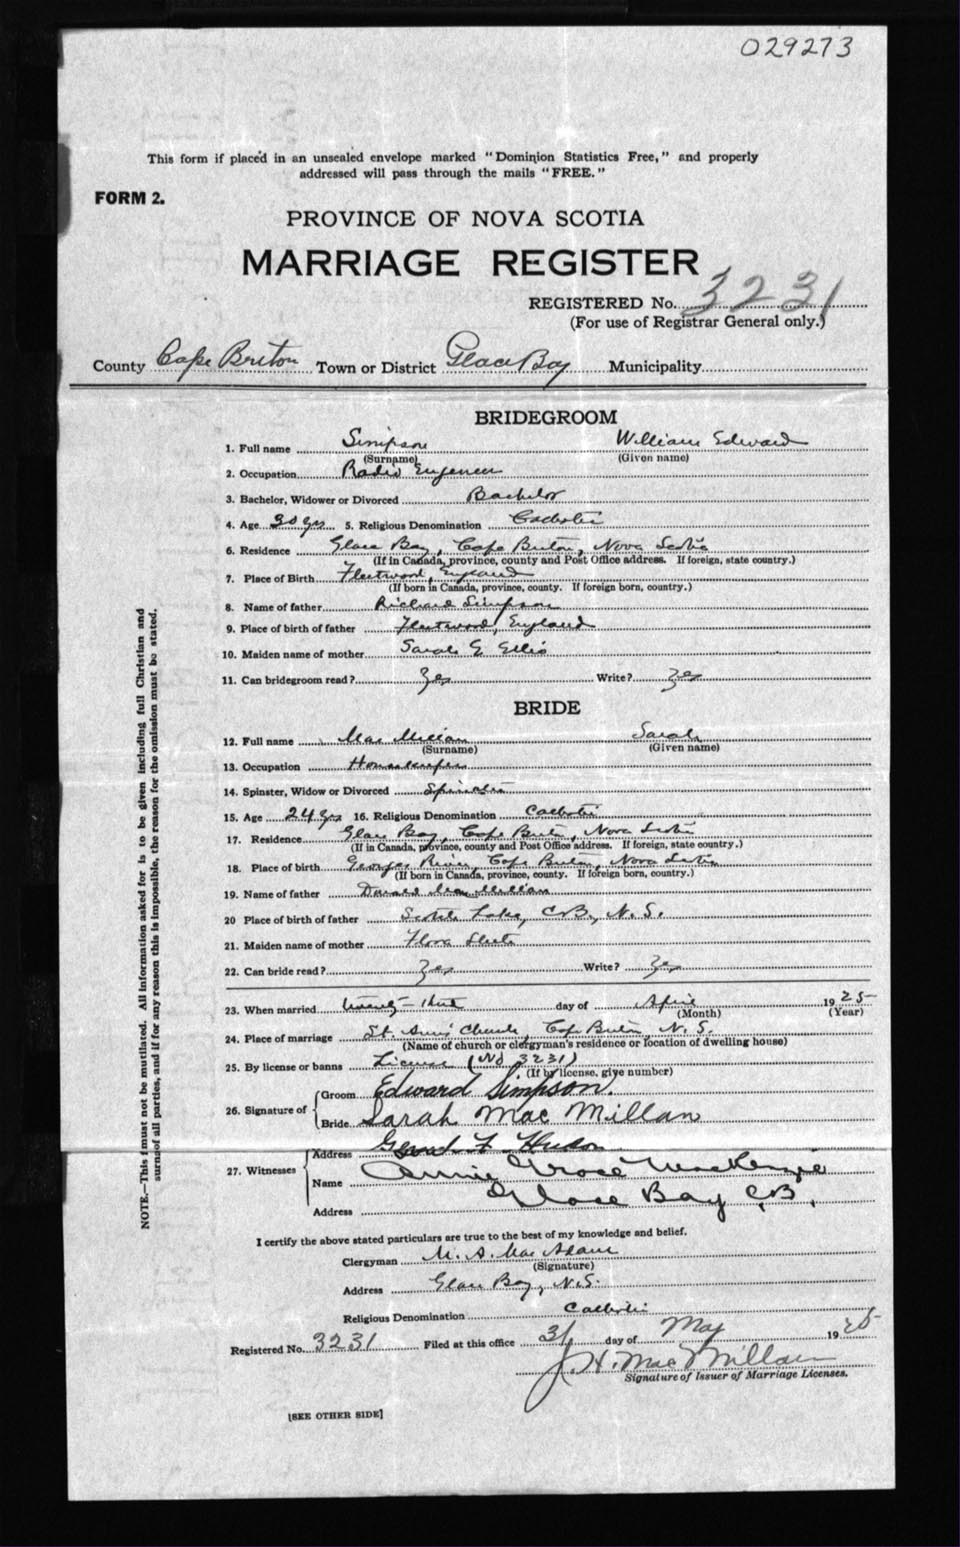 029273
This form if placed in an unsealed envelope marked "Dominion Statistics Free," and properly
addressed will pass through the mails "FREE."
FORM 2.
PROVINCE OF NOVA SCOTIA
MARRIAGE REGISTER
REGISTERED No. 3231
(For use of Registrar General only.)
County Cape Breton Town or District Glace Bay Municipality
BRIDEGROOM
1. Full name Simpson William Edward
(Surname) (Given name)
2. Occupation Radio Engineer
3. Bachelor, Widower or Divorced Bachelor
4. Age 30 yrs 5. Religious Denomination Catholic
6. Residence Glace Bay, Cape Breton, Nova Scotia
(If in Canada, province, county and Post Office address. If foreign, state country.)
7. Place of Birth Fleetwood, England
(If born in Canada, province, county. If foreign born, country.)
8. Name of father Richard Simpson
9. Place of birth of father Fleetwood, England
10. Maiden name of mother Sarah E Ellis
11. Can bridegroom read? Yes Write? Yes
BRIDE
12. Full name MacMillan Sarah
(Surname) (Given name)
13. Occupation Housekeeper
14. Spinster, Widow or Divorced Spinster
15. Age 24 yrs 16. Religious Denomination Catholic
17. Residence Glace Bay, Cape Breton, Nova Scotia
(If in Canada, province, county and Post Office address. If foreign, state country.)
18. Place of birth Georges River, Cape Breton, Nova Scotia
(If born in Canada, province, county. If foreign born, country.)
19. Name of father MacMillan
20 Place of birth of father Lake, C.B., N.S.
21. Maiden name of mother Flora
22. Can bride read? Yes Write? Yes
23. When married twenty- day of April 1925
(Month) (Year)
24. Place of marriage St Ann's Church, Cape Breton, N.S.
(Name of church or clergyman's residence or location of dwelling house)
25. By license or banns License (No 3231)
(If by license, give number)
26. Signature of Groom Edward Simpson.
Bride Sarah MacMillan
27. Witnesses Address F.
Name Annie Grace MacKenzie
Glace Bay C.B.
Address
I certify the above stated particulars are true to the best of my knowledge and belief.
Clergyman M. A. MacAdam
(Signature)
Address Glace Bay, N.S.
Religious Denomination Catholic
Registered No. 3231 Filed at this office 31 day of May 1925
J. H. MacMillan
Signature of Issuer of Marriage Licenses.
[SEE OTHER SIDE]
NOTE.—This form must not be mutilated. All information asked for is to be given including full Christian and
surname of all parties, and if for any reason this is impossible, the reason for the omission must be stated.